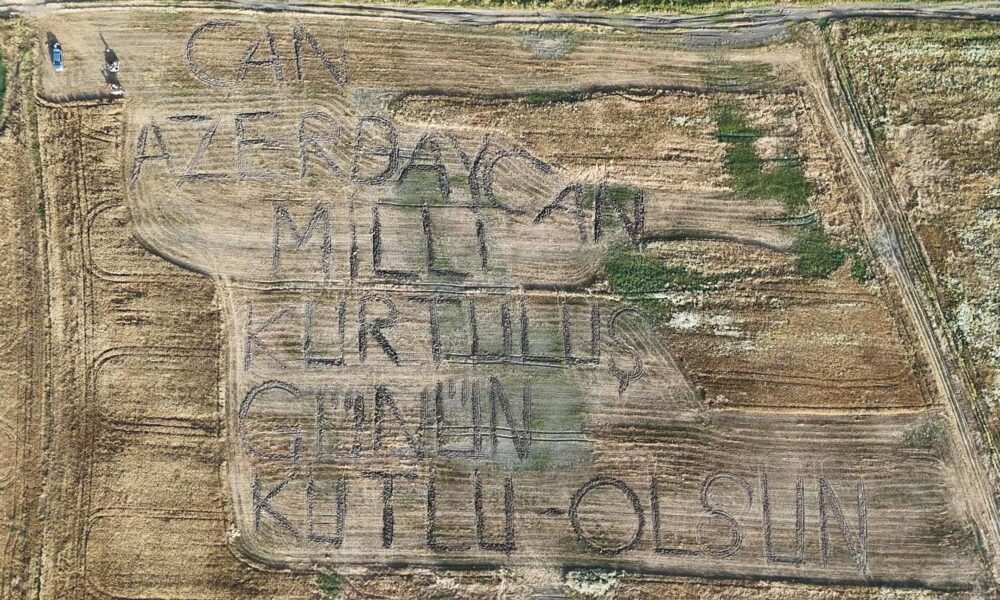 CAN
AZERBAYCAN
MİLLİ
KURTULUŞ
GÜNÜN
KUTLU OLSUN